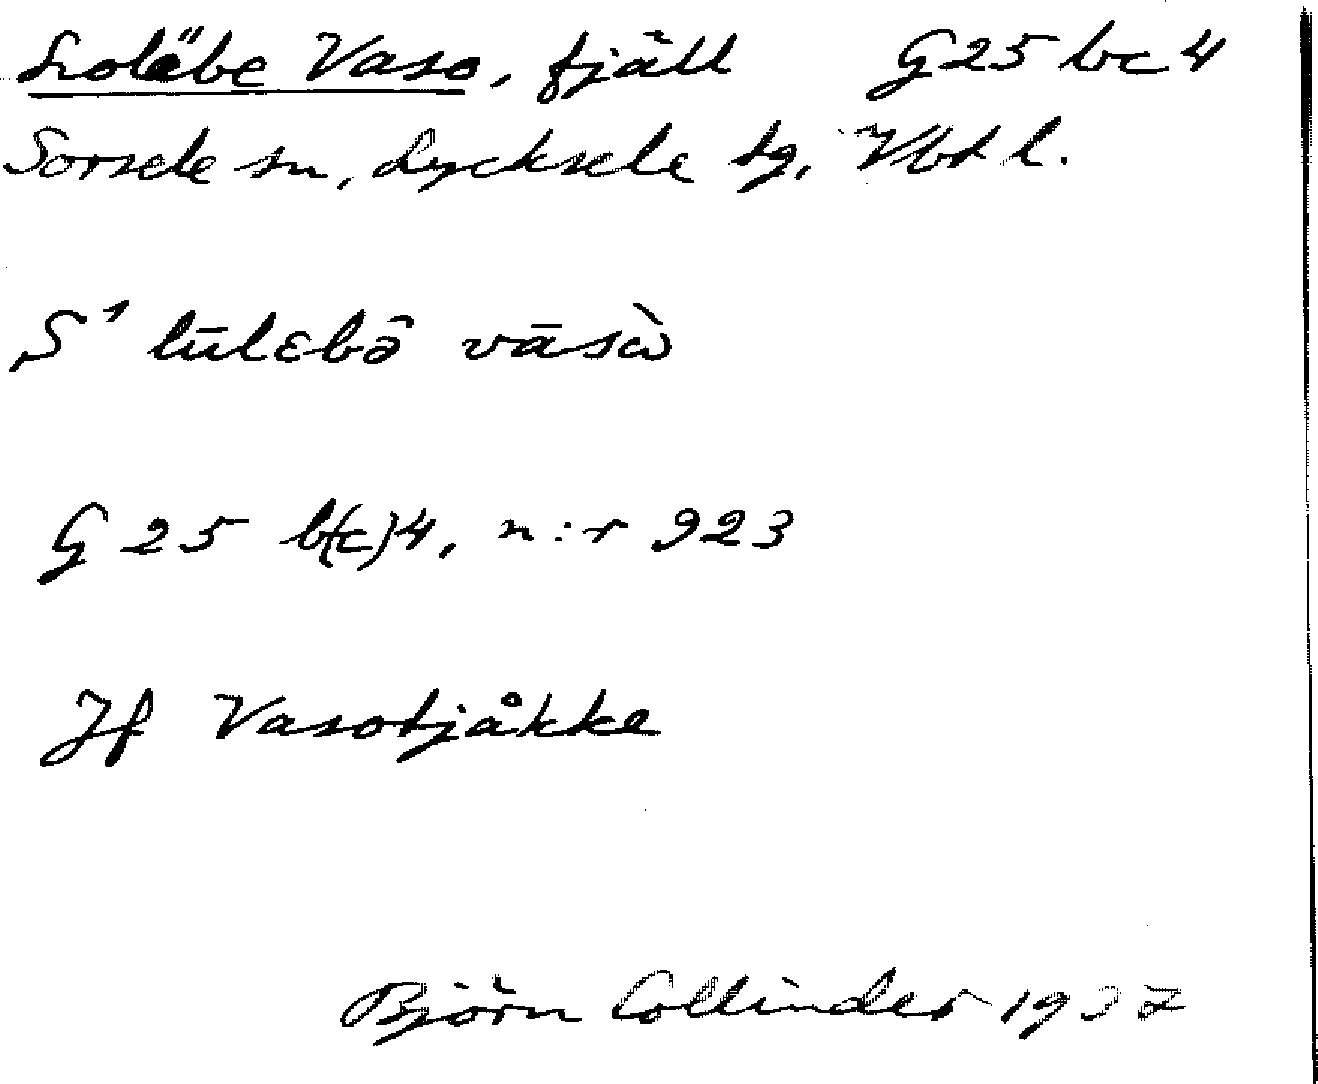 Luoläbe Vaso, fjäll G25 bc 4
Sorsele sn, Lycksele tg, Vbt l.
S¹ lūlεbə̂ vāsɷ̀
G 25 b(c)4, n:r 923
Jf Vasotjåkke
Björn Collinder 1937